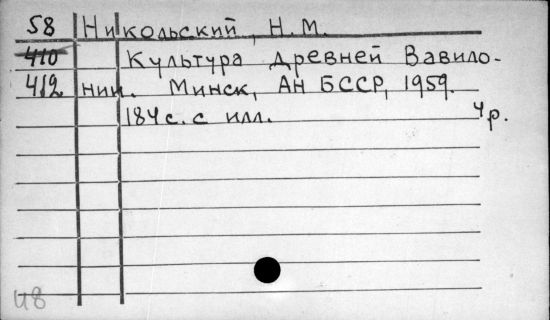 58 Никольский, Н.М.
410 Культура древней Вавило-
412 нии. Минск, АН БССР, 1959.
184 с. с илл. 4р.
48